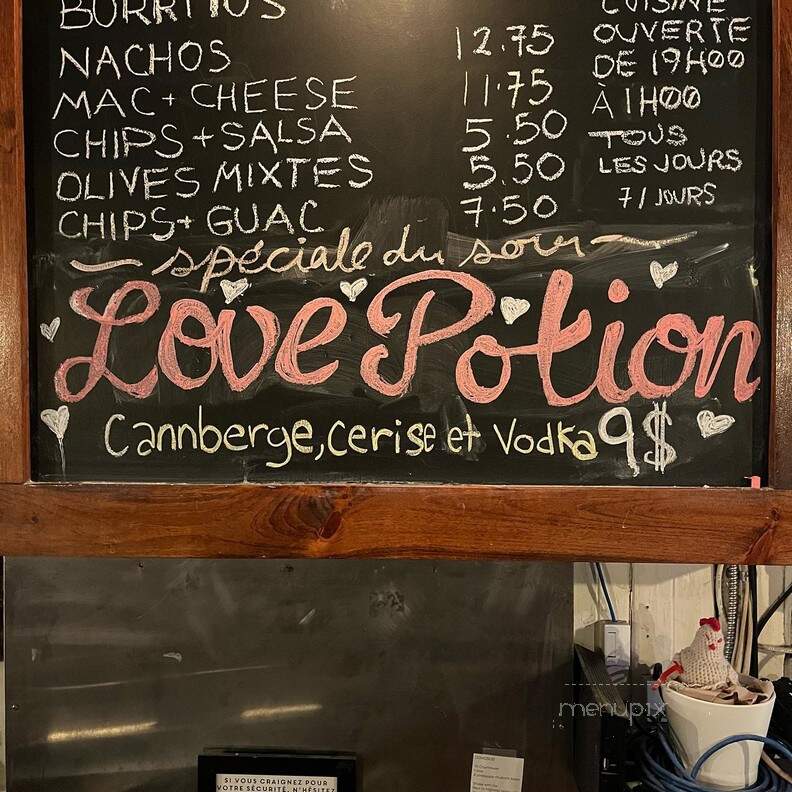 BURRITOS
NACHOS 12.75
MAC + CHEESE 11.75
CHIPS + SALSA 5.50
OLIVES MIXTES 5.50
CHIPS + GUAC 7.50
CUISINE
OUVERTE
DE 19H00
À 1H00
TOUS
LES JOURS
7/JOURS
spéciale du soir
Love Potion
Cannberge, cerise et Vodka 9$
menupix
SI VOUS CRAIGNEZ POUR
VOTRE SÉCURITÉ, N'HÉSITEZ